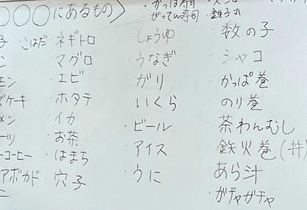 ○○○にあるもの〉
・かっぱ寿司
・がってん寿司
・銚子丸
こはだ
・ネギトロ
・マグロ
・エビ
・ホタテ
・イカ
・お茶
・はまち
・穴子
コーヒー
アボカド
・しょうゆ
・うなぎ
・ガリ
・いくら
・ビール
・アイス
・うに
・数の子
・シャコ
・かっぱ巻
・のり巻
・茶わんむし
・鉄火巻(丼)
・あら汁
・ガチャガチャ